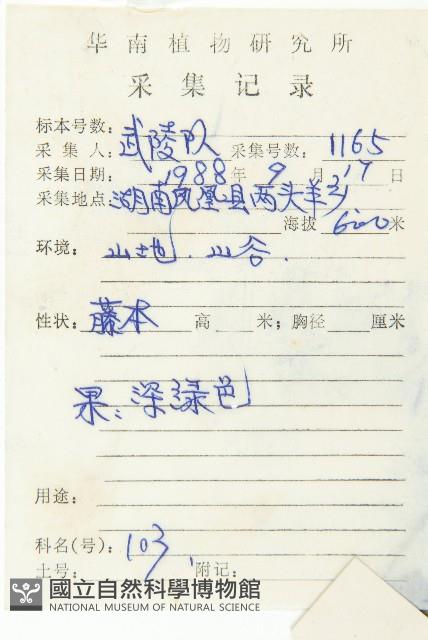 华南植物研究所
采集记录
标本号数：
采集人：武陵队 采集号数：1165
采集日期：1988年9月17日
采集地点：湖南凤凰县两头羊乡
海拔 600米
环境：山地．山谷．
性状：藤本 高 米；胸径 厘米
果：深绿色
用途：
科名(号)：103
土号： 附记：
國立自然科學博物館
NATIONAL MUSEUM OF NATURAL SCIENCE